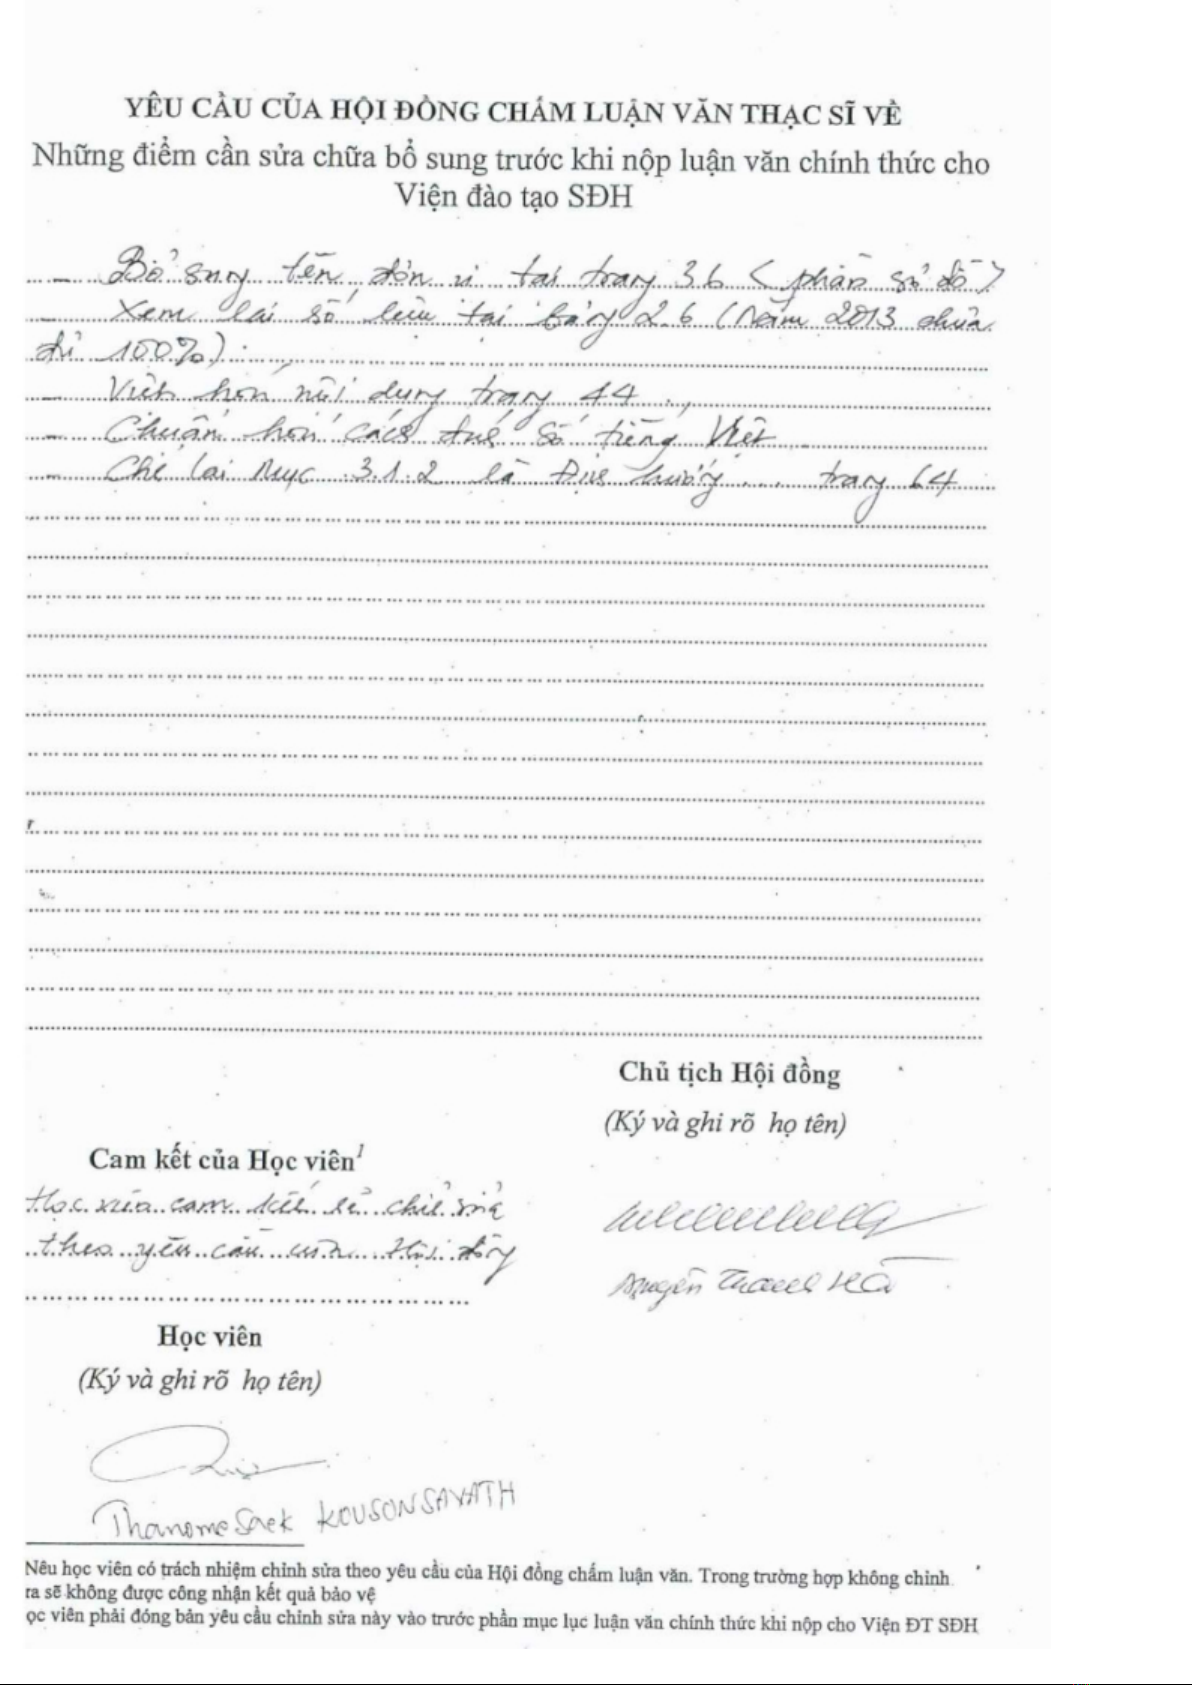 YÊU CẦU CỦA HỘI ĐỒNG CHẤM LUẬN VĂN THẠC SĨ VỀ
Những điểm cần sửa chữa bổ sung trước khi nộp luận văn chính thức cho
Viện đào tạo SĐH
- Bổ sung tên đơn vị tại trang 36 (phần sơ đồ)
- Xem lại số liệu tại bảng 2.6 (Năm 2013 chưa
đủ 100%).
- Việt hoá nội dung trang 44
- Chuẩn hoá cách số tiếng Việt
- lại Mục 3.1.2 là Định hướng .... trang 64
Chủ tịch Hội đồng
(Ký và ghi rõ họ tên)
Cam kết của Học viên1
Học viên cam kết sẽ chỉnh sửa
theo yêu cầu của Hội đồng
Nguyễn Thanh Hà
Học viên
(Ký và ghi rõ họ tên)
Thanomesaek KOUSONSAVATH
Nêu học viên có trách nhiệm chỉnh sửa theo yêu cầu của Hội đồng chấm luận văn. Trong trường hợp không chỉnh
ra sẽ không được công nhận kết quả bảo vệ
ọc viên phải đóng bản yêu cầu chỉnh sửa này vào trước phần mục lục luận văn chính thức khi nộp cho Viện ĐT SĐH